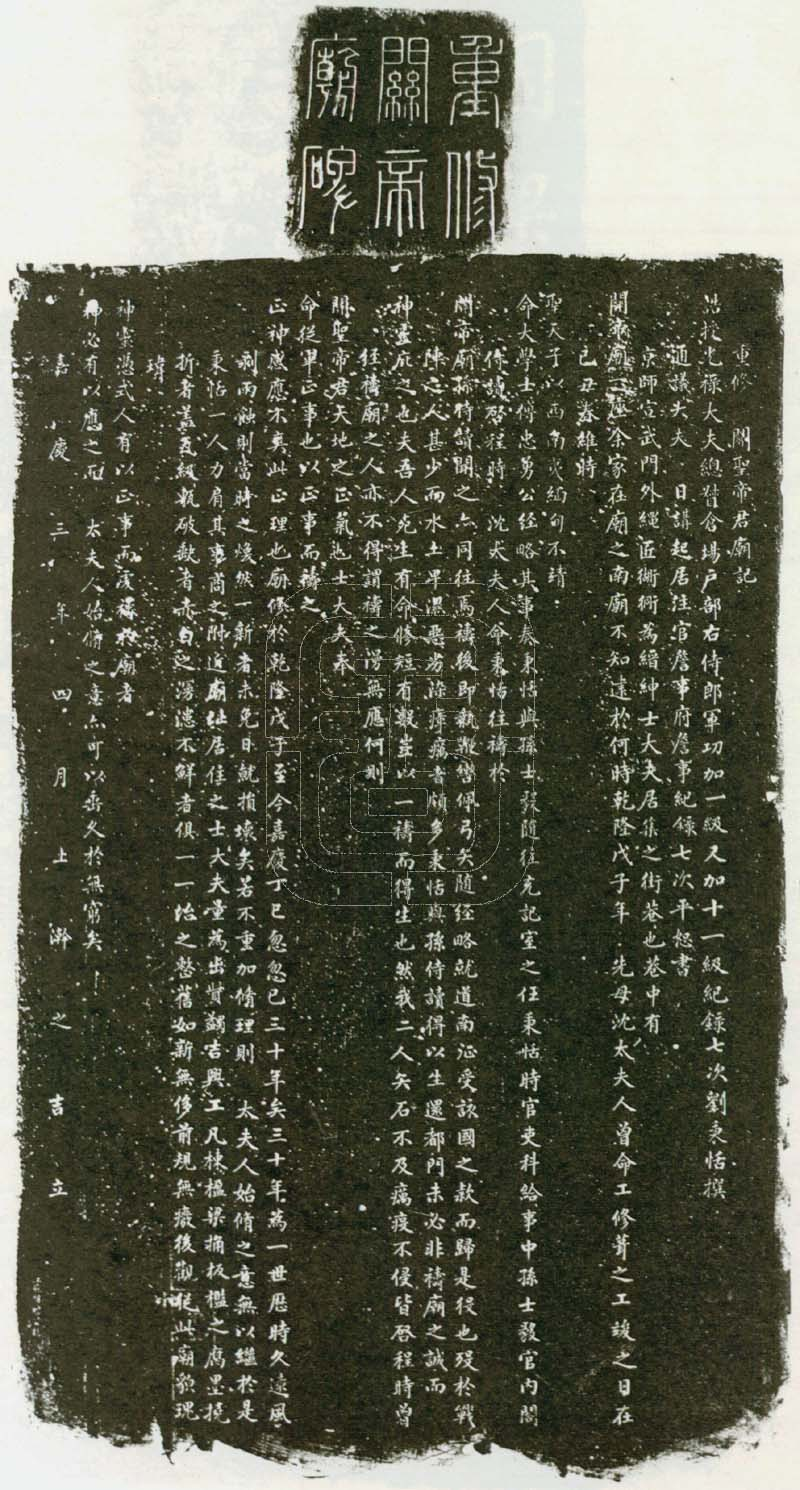 重修
關帝
廟碑
重修 關聖帝君廟記
誥授光祿大夫總督倉場戶部右侍郎軍功加一級又加十一級紀錄七次劉秉恬撰
通議大夫 日講起居注官詹事府詹事紀錄七次平恕書
京師宣武門外繩匠衚衕為縉紳士大夫居集之街巷也巷中有
關帝廟一座余家在廟之南廟不知建於何時乾隆戊子年 先母沈太夫人曾命工修葺之工竣之日在
己丑春維時
聖天子以西南夷緬匈不靖
命大學士傅忠勇公經略其事奏秉恬與孫士毅隨往充記室之任秉恬時官吏科給事中孫士毅官內閣
侍讀啓程時 沈太夫人命秉恬往禱於
關帝廟孫侍讀聞之亦同往焉禱後即執鞭彎佩弓矢隨經略就道南征受該國之款而歸是役也歿於戰
陣之人甚少而水土卑濕惡劣染瘴癘者頗多秉恬與孫侍讀得以生還都門未必非禱廟之誠而
神靈庇之也夫吾人死生有命修短有數豈以一禱而得生也然我二人矢石不及癘疫不侵皆啓程時曾
經禱廟之人亦不得謂禱之漫無應何則
關聖帝君天地之正氣也士大夫奉
命從軍正事也以正事而禱之
正神感應不爽此正理也廟修於乾隆戊子至今嘉慶丁巳忽忽已三十年矣三十年為一世歷時久遠風
剝雨蝕則當時之煥然一新者未免日就損壞矣若不重加脩理則 太夫人始脩之意無以繼於是
秉恬一人力肩其事商之附近廟址居住之士大夫量為出貲蠲吉興工凡棟楹梁桷板檻之腐黑撓
折者蓋瓦級甎破缺者赤白之漫漶不鮮者俱一一治之整舊如新無侈前規無癈後觀從此廟貌瑰
瑋
神靈憑式人有以正事而虔禱於廟者
神必有以應之而 太夫人始脩之意亦可以垂久於無窮矣
嘉慶三年四月上澣之吉立